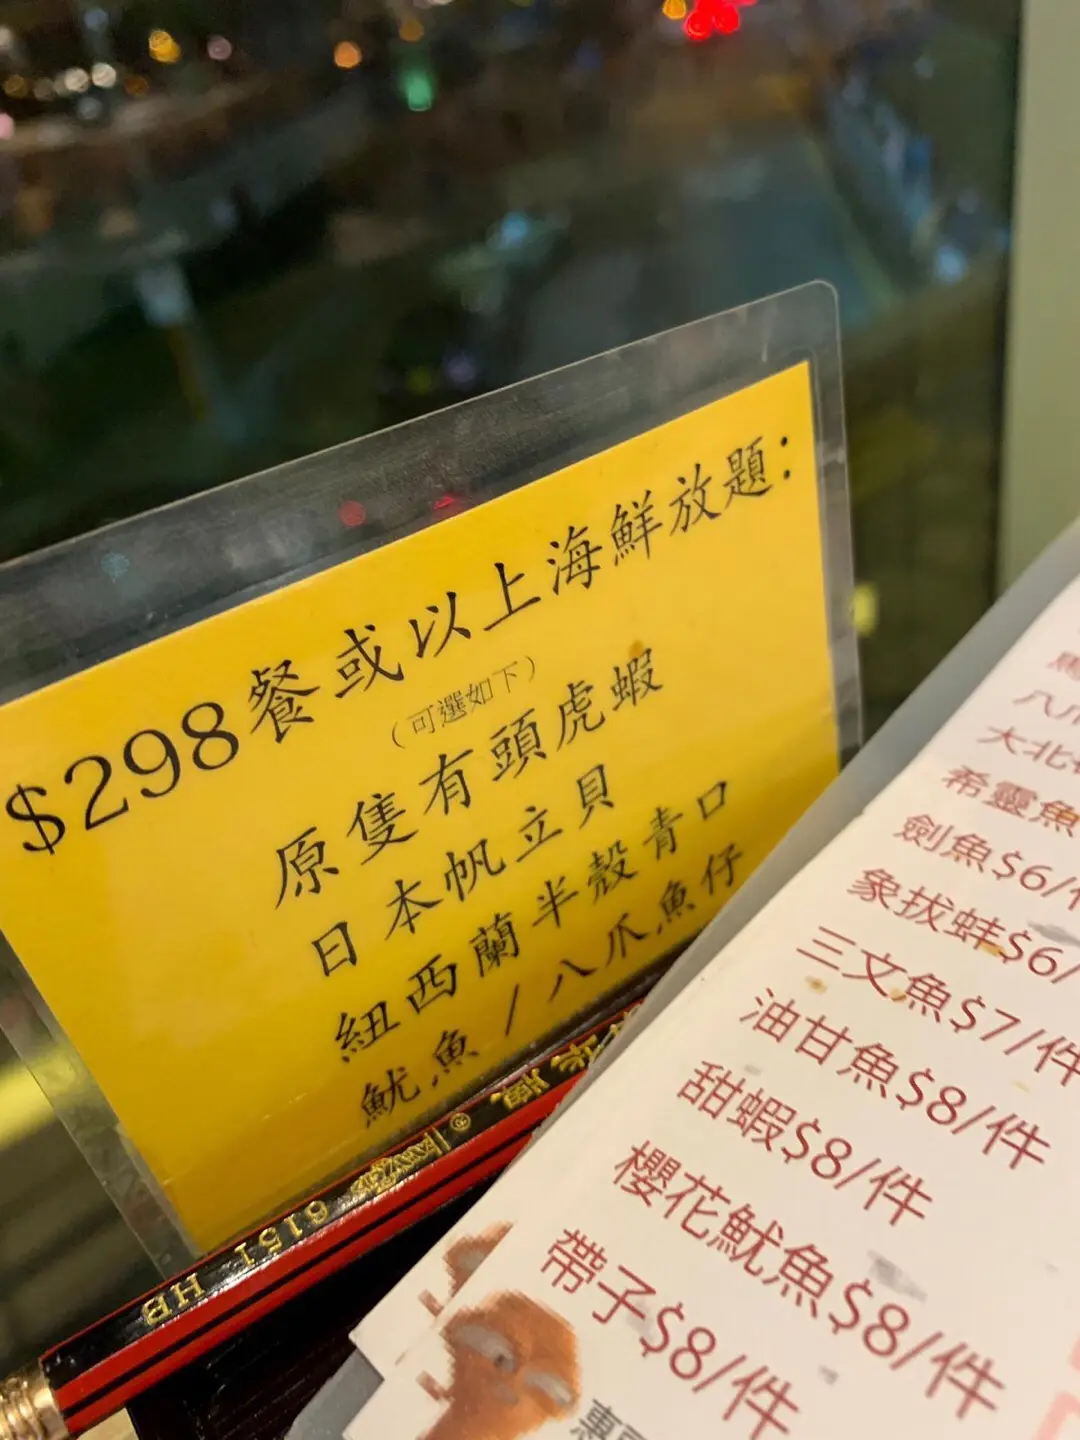 $298餐或以上海鮮放題:
(可選如下)
原隻有頭虎蝦
日本帆立貝
紐西蘭半殼青口
魷魚/八爪魚仔
6151 HB
大北
希靈魚
劍魚$6/
象拔蚌$6/
三文魚$7/件
油甘魚$8/件
甜蝦$8/件
櫻花魷魚$8/件
帶子$8/件
惠